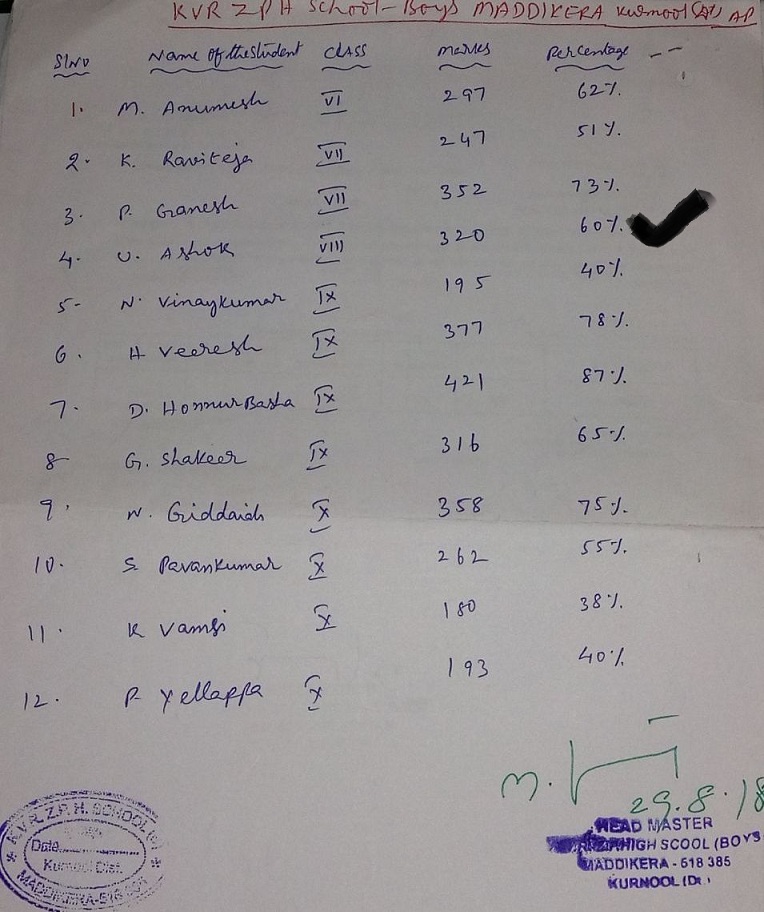 KVR ZPH School-Boys MADDIKERA Kurnool AP
SlNo Name of the student CLASS Marks Percentage
1. M. Anumesh VI 297 62%
2. K. Raviteja VII 247 51%
3. P. Ganesh VII 352 73%
4. U. Ashok VIII 320 60%
5- N. Vinaykumar IX 195 40%
6. H Veeresh IX 377 78%
7. D. Honnur Basha IX 421 87%
8- G. Shakeer IX 316 65%
9. N. Giddaiah X 358 75%
10. S. Pavankumar X 262 55%
11. K Vamsi X 180 38%
12. P. Yellappa X 193 40%
29.8.18
HEAD MASTER
HIGH SCOOL (BOYS
MADDIKERA - 518 385
KURNOOL (Dt.)
K.V.R. Z.P.H. SCHOOL
Date
Kurnool Dist.